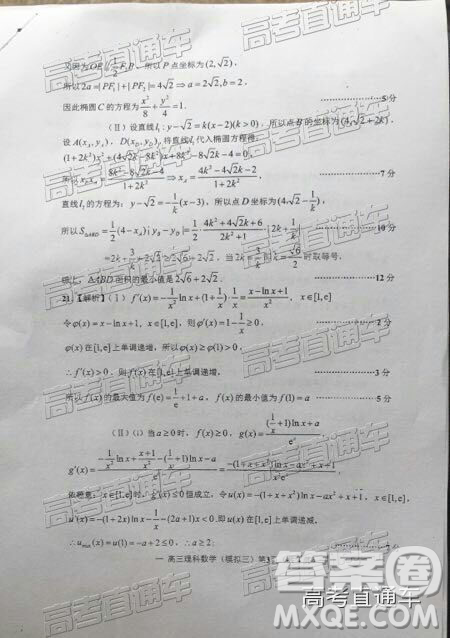 又因为OE∥½F₂B，所以P点坐标为(2,√2)，
所以2a=|PF₁|+|PF₂|=4√2⇒a=2√2,b=2．
因此椭圆C的方程为x²/8+y²/4=1． 5分
（II）设直线l₁:y-√2=k(x-2)(k>0)．所以点B的坐标为(4,√2+2k)．
设A(x_A,y_A)，D(x_D,y_D),将直线l₁代入椭圆方程得：
(1+2k²)x²+(4√2k-8k²)x+8k²-8√2k-4=0．
⇒x_A=(4k²-4√2k-2)/(1+2k²)， 7分
直线l₂的方程为：y-√2=-1/k(x-3)，所以点D坐标为(4,√2-1/k)，
=1/2(4-x_A)|y_B-y_D|=1/2·(4k²+4√2k+6)/(2k²+1)·|2k+1/k| 10分
=2k+3/k+2√2≥2√6+2√2．当2k=3/k即k=√6/2时取等号．
综上，△ABD面积的最小值是2√6+2√2． 12分
21.【解析】（I）f′(x)=-1/x² ln x+(1+1/x)·1/x=(x-ln x+1)/x²，x∈[1,e]
令φ(x)=x-ln x+1，x∈[1,e]，则φ′(x)=1-1/x≥0．
φ(x)在[1,e]上单调递增，所以φ(x)≥φ(1)>0，
∴f′(x)>0．则f(x)在[1,e]上单调递增， 3分
所以f(x)的最大值为f(e)=1/e+1+a，f(x)的最小值为f(1)=a 5分
（II）(i)当a≥0时，f(x)≥0，g(x)=((1/x+1)ln x+a)/e^x
g′(x)=(-1/x² ln x+(x+1)/x²-(1/x+1)ln x-a)/e^x=(-(1+x+x²)ln x-ax²+x+1)/(x²e^x)，
依题意：x∈[1,e]时，g′(x)≤0恒成立，令u(x)=-(1+x+x²)ln x-ax²+x+1，x∈[1,e]，
u′(x)=-(1+2x)ln x-1/x-(2a+1)x<0,即u(x)在[1,e]上单调递减，
∴u_max(x)=u(1)=-a+2≤0，∴a≥2； 7分
一 高三理科数学（模拟三）第3
高考直通车
答案圈
MXQE.COM